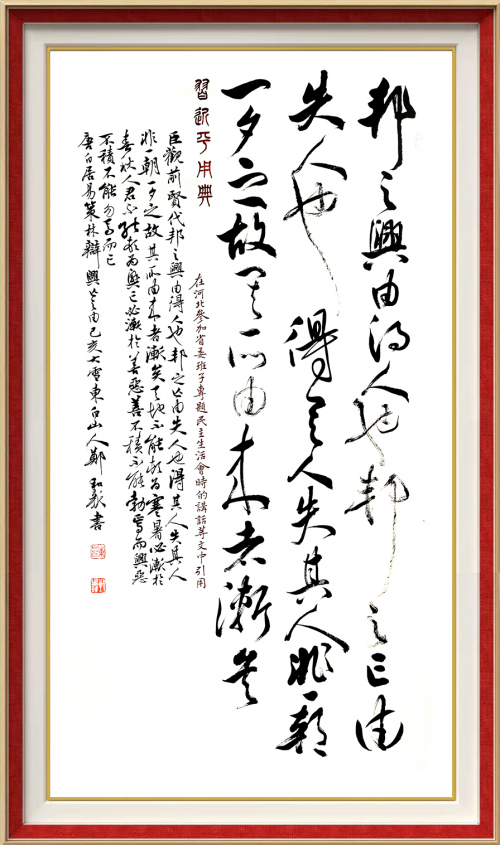 邦之興由得人也邦之亡由
失人也得其人失其人非一朝
一夕之故其所由来者漸矣
習近平用典
在河北參加省委班子專題民主生活會時的講話等文中引用
臣觀前賢代邦之興由得人也邦之亡由失人也得其人失其人
非一朝一夕之故其所由来者漸矣天地不能頓為寒暑必漸於
春秋人君不能頓為興亡必漸於善惡善不積不能勃焉而興惡
不積不能忽焉而亡
唐白居易策林辯興亡由己亥大雪東白山人鄭書